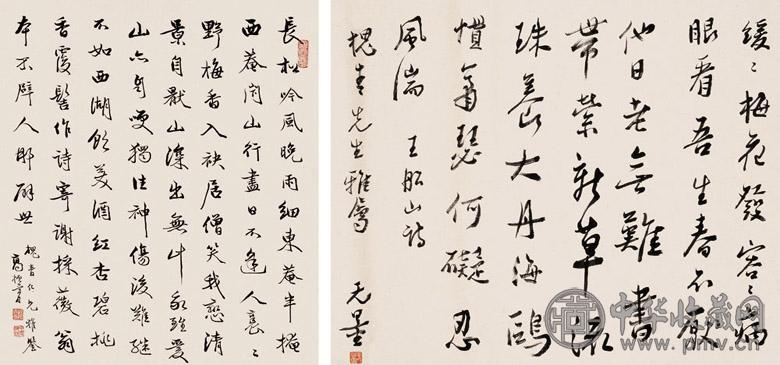 緩〻梅花發容〻病
眼看吾生春不厭
他日老無難書
帶縈新草流
珠養大丹海鷗
慣蕭瑟何礙忍
風湍 王船山詩
槐青先生雅屬 无量
長松吟風晚雨細東菴半掩
西菴閉山行盡日不逢人裛〻
野梅香入袂居僧笑我戀清
景自厭山深出無計我雖愛
山亦自笑獨往神傷後難繼
不如西湖飲美酒紅杏碧桃
香覆髻作詩寄謝採薇翁
本不辟人那辟世
槐青仁兄雅鑒
中华收藏网
www.pmv.cn